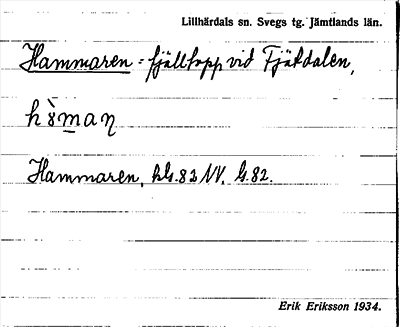 Lillhärdals sn. Svegs tg. Jämtlands län.
Hammaren = fjälltopp vid Fjätdalen,
Hammaren, kbl. 82 NV, G. 82.
Erik Eriksson 1934.